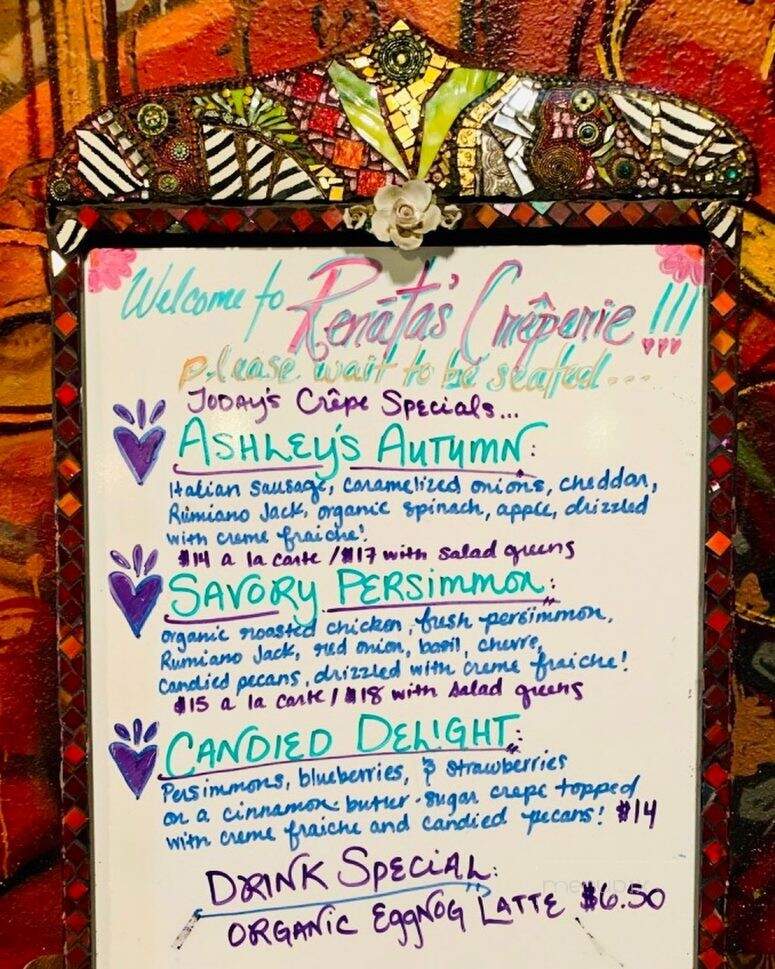 Welcome to Renata's Crêperie!!!
please wait to be seated...
Today's Crêpe Specials...
Ashley's Autumn:
Italian sausage, caramelized onions, cheddar,
Rumiano Jack, organic spinach, apple, drizzled
with creme fraiche!
$14 a la carte / $17 with salad greens
Savory Persimmon:
organic roasted chicken, fresh persimmon,
Rumiano Jack, red onion, basil, chevre,
candied pecans, drizzled with creme fraiche!
$15 a la carte / $18 with salad greens
Candied Delight:
Persimmons, blueberries, & strawberries
on a cinnamon-butter-sugar crepe topped
with creme fraiche and candied pecans! $14
Drink Special:
Organic Eggnog Latte $6.50